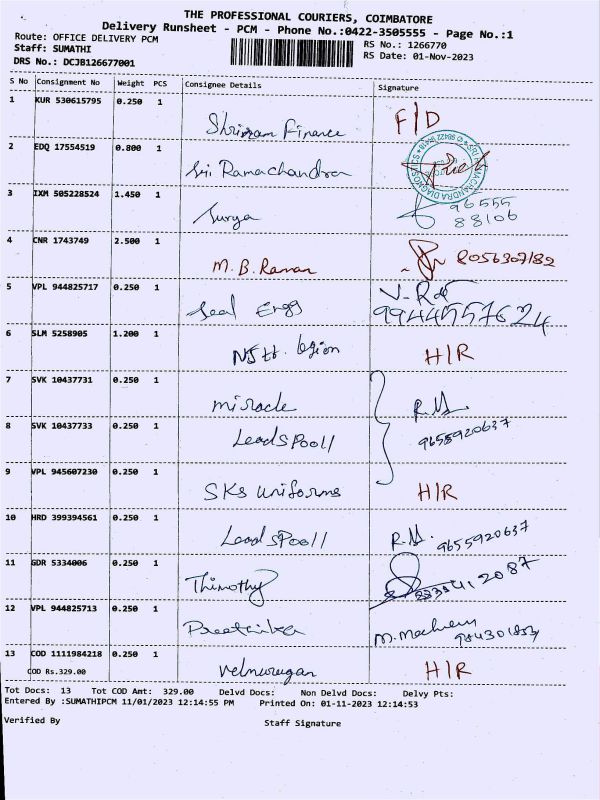 THE PROFESSIONAL COURIERS, COIMBATORE
Delivery Runsheet - PCM - Phone No.:0422-3505555 - Page No.:1
Route: OFFICE DELIVERY PCM RS No.: 1266770
Staff: SUMATHI RS Date: 01-Nov-2023
DRS No.: DCJB126677001
S No Consignment No Weight PCS Consignee Details Signature
1 KUR 530615795 0.250 1 Shriram Finance F/D
2 EDQ 17554519 0.800 1 Sri Ramachandra
3 IXM 505228524 1.450 1 Surya 96555 88106
4 CNR 1743749 2.500 1 M.B. Raman 8056307182
5 VPL 944825717 0.250 1 Seal Engg 9944557624
6 SLM 5258905 1.200 1 H/R
7 SVK 10437731 0.250 1 Miracle R.M.
8 SVK 10437733 0.250 1 LeadSPooll 9655920637
9 VPL 945607230 0.250 1 SKS uniforms H/R
10 HRD 399394561 0.250 1 LeadSPooll R.M. 9655920637
11 GDR 5334006 0.250 1 Thimothy
12 VPL 944825713 0.250 1 Preethika
13 COD 1111984218 0.250 1 velmurugan H/R
COD Rs.329.00
Tot Docs: 13 Tot COD Amt: 329.00 Delvd Docs: Non Delvd Docs: Delvy Pts:
Entered By :SUMATHIPCM 11/01/2023 12:14:55 PM Printed On: 01-11-2023 12:14:53
Verified By Staff Signature